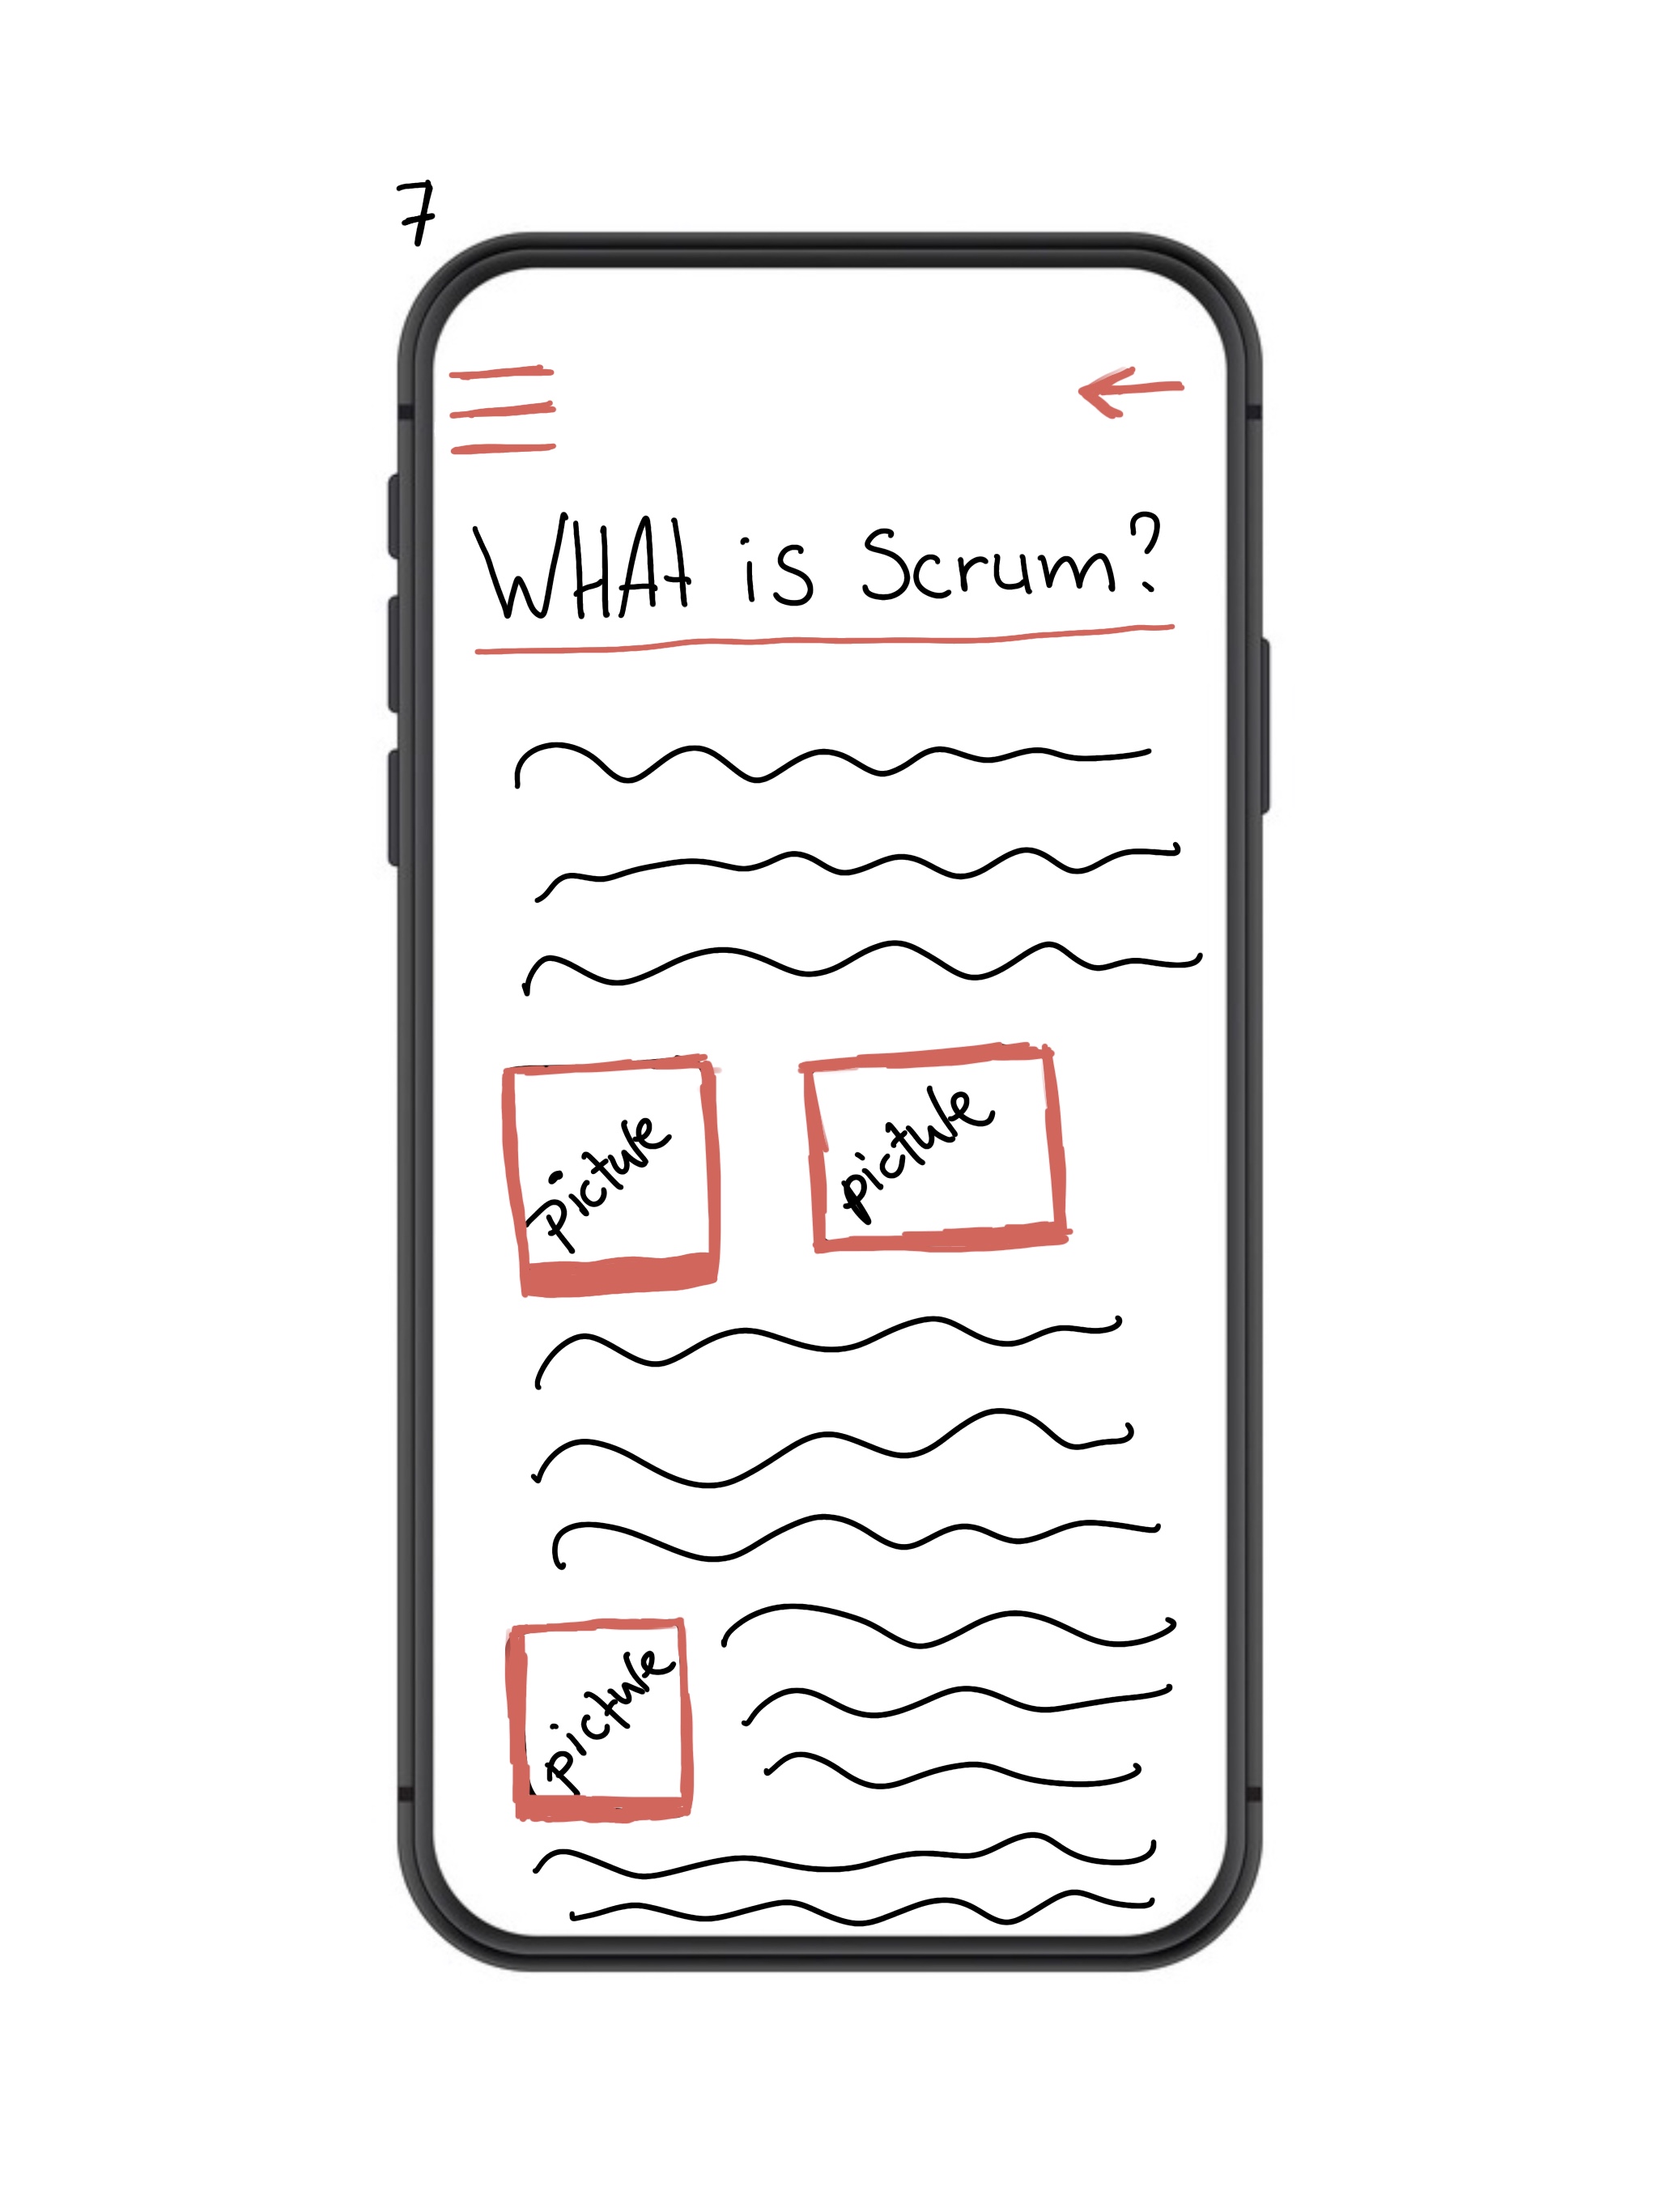 7
WHAt is Scrum?
Picture
picture
picture